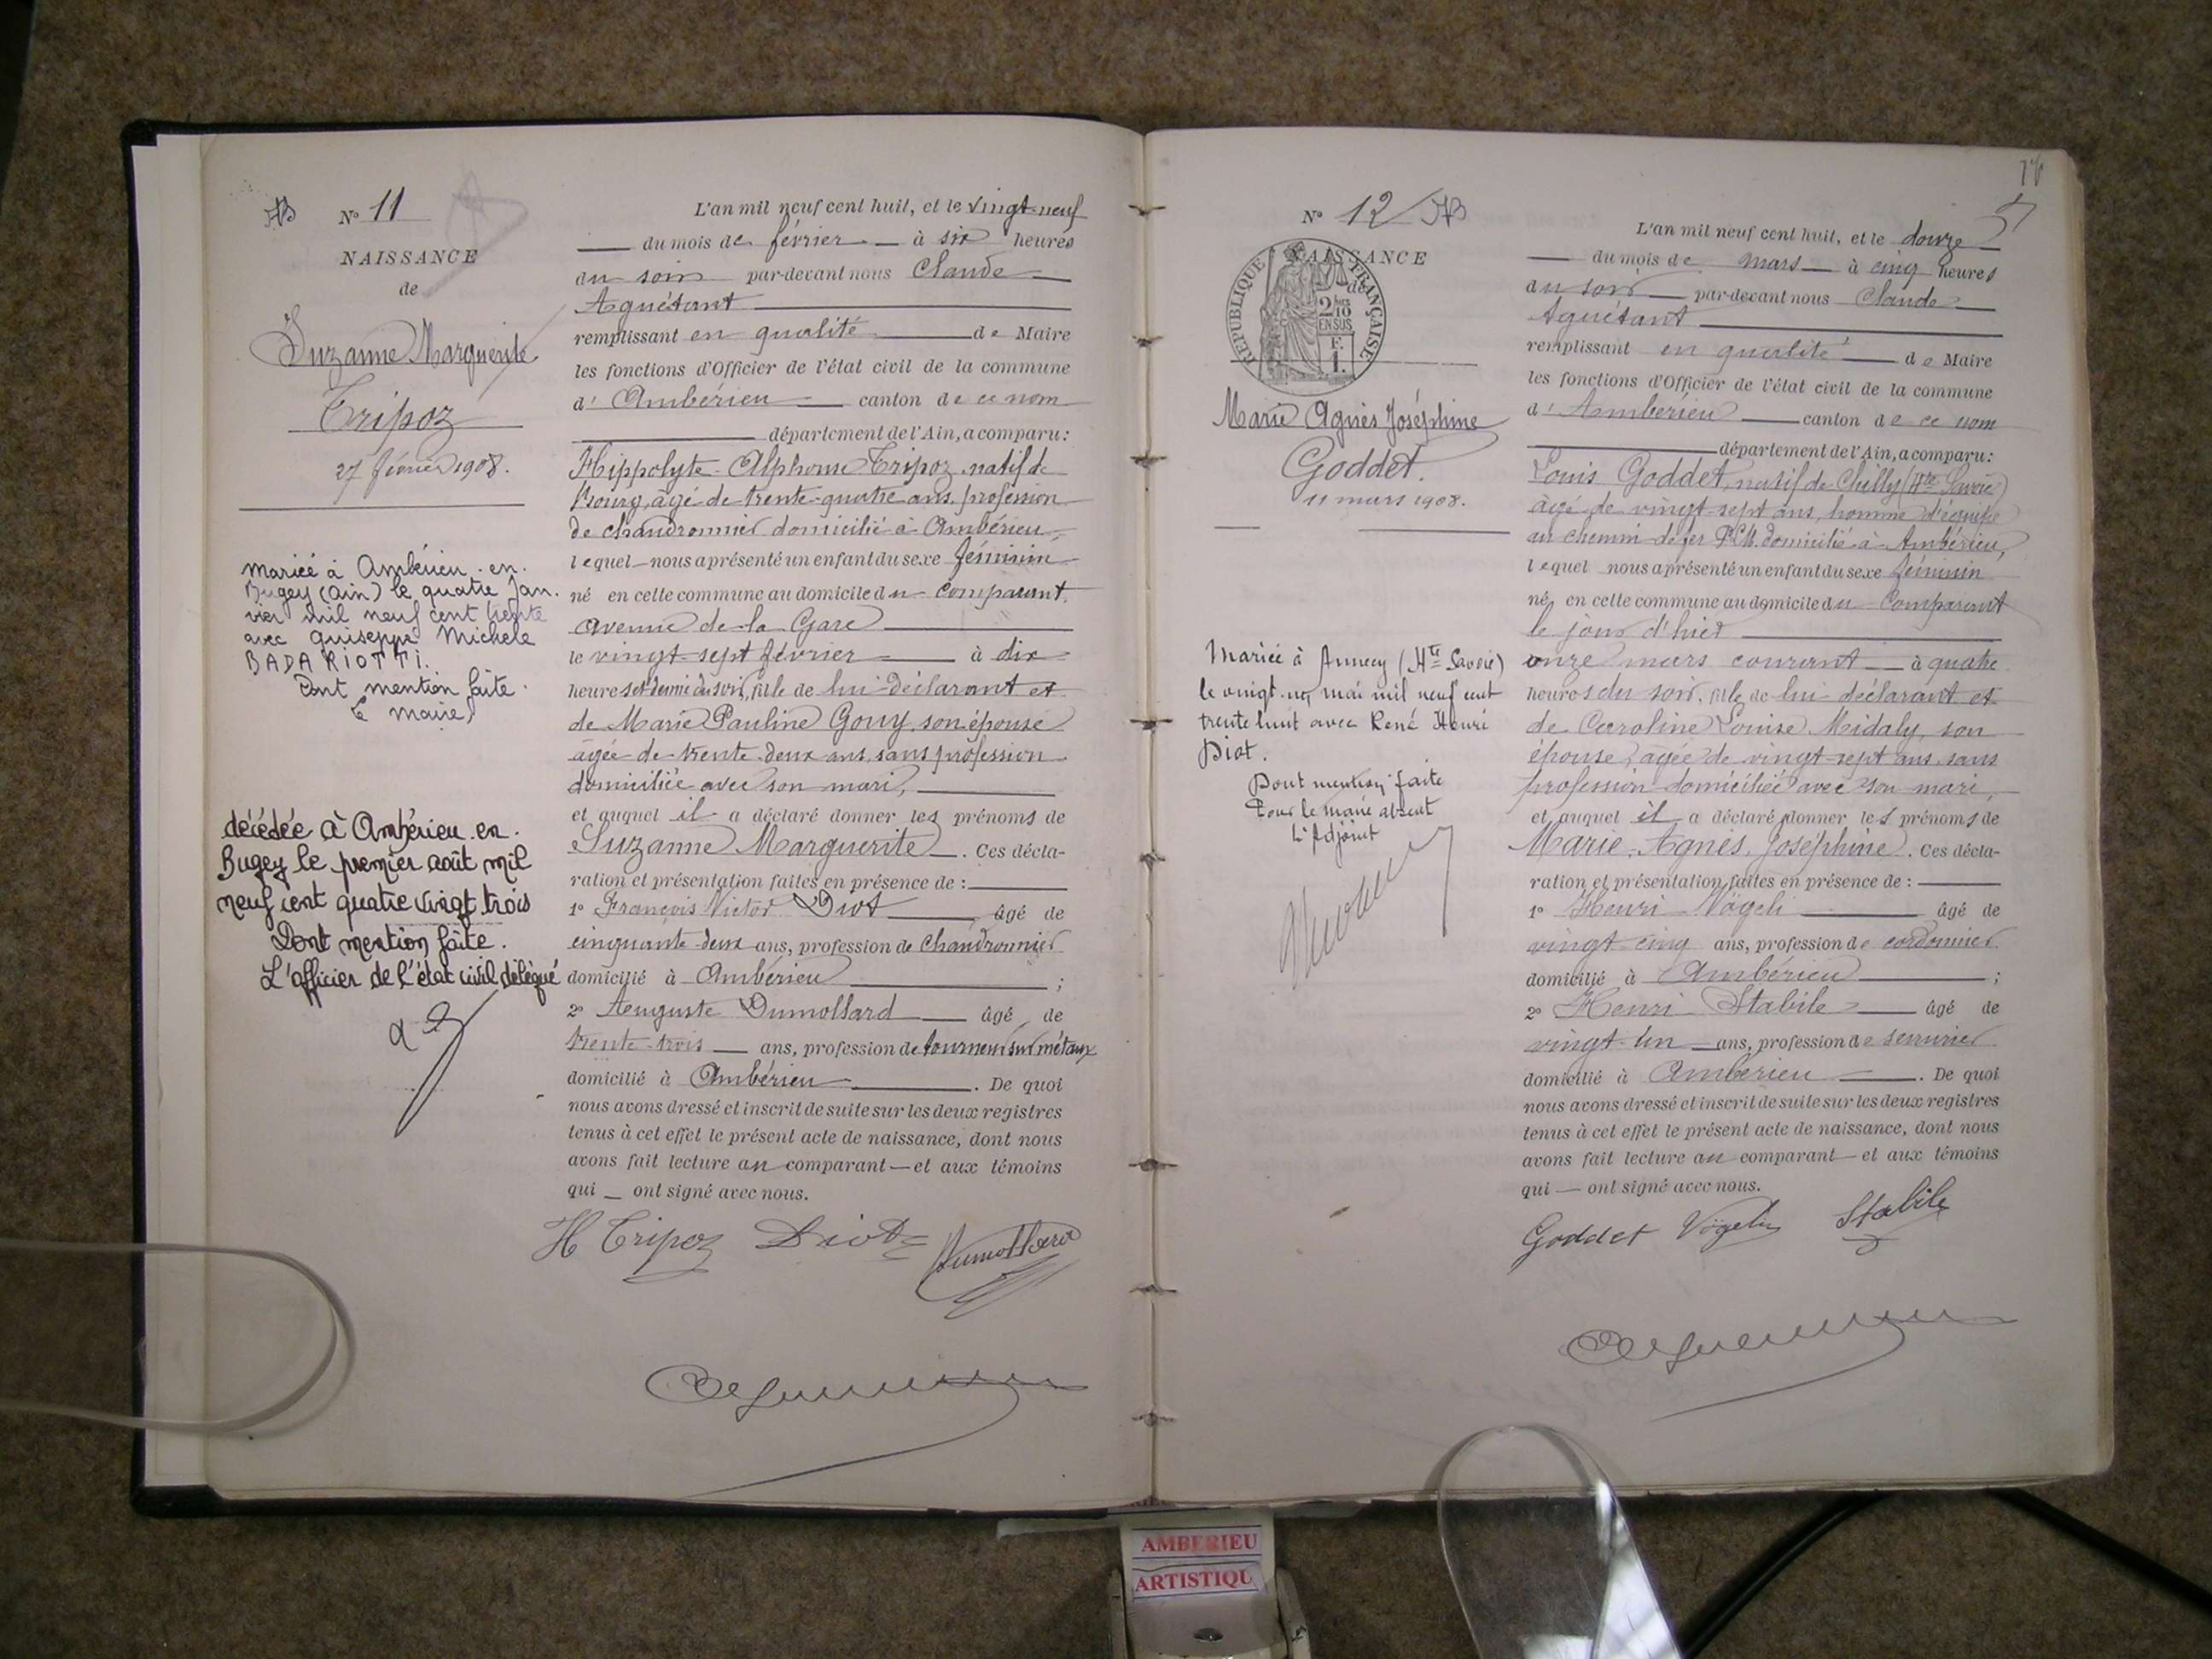 AB N° 11
NAISSANCE
de
Suzanne Marguerite
Tripoz
27 février 1908.
mariée à Ambérieu-en-
Bugey (Ain) le quatre Jan-
vier mil neuf cent trente
avec Guiseppe Michele
BADARIOTTI.
Dont mention faite.
Le Maire
décédée à Ambérieu-en-
Bugey le premier août mil
neuf cent quatre vingt trois
Dont mention faite.
L'officier de l'état civil délégué
L'an mil neuf cent huit, et le vingt-neuf
du mois de février à six heures
du soir par-devant nous Claude
Aguétant
remplissant en qualité de Maire
les fonctions d'Officier de l'état civil de la commune
d' Ambérieu canton de ce nom
département de l'Ain, a comparu:
Hippolyte Alphonse Tripoz natif de
Bourg, âgé de trente-quatre ans, profession
de chaudronnier domicilié à Ambérieu,
lequel nous a présenté un enfant du sexe féminin
né en cette commune au domicile du comparant,
avenue de la Gare
le vingt-sept février à dix
heures et demie du soir, fille de lui déclarant et
de Marie Pauline Gouy, son épouse
âgée de trente-deux ans, sans profession
domiciliée avec son mari,
et auquel il a déclaré donner les prénoms de
Suzanne Marguerite. Ces décla-
ration et présentation faites en présence de :
1° François Victor Diot âgé de
cinquante-deux ans, profession de Chaudronnier
domicilié à Ambérieu ;
2° Auguste Dumollard âgé de
trente-trois ans, profession de tourneur sur métaux
domicilié à Ambérieu. De quoi
nous avons dressé et inscrit de suite sur les deux registres
tenus à cet effet le présent acte de naissance, dont nous
avons fait lecture au comparant et aux témoins
qui ont signé avec nous.
H Tripoz Diot Dumollard
N° 12 AB
NAISSANCE
de
RÉPUBLIQUE FRANÇAISE
2/10
EN SUS
F.
1.
Marie Agnès Joséphine
Goddet.
11 mars 1908.
Mariée à Annecy (Hte Savoie)
le vingt-un mai mil neuf cent
trente huit avec René Henri
Diot.
Dont mention faite
Pour le maire absent
L'Adjoint
L'an mil neuf cent huit, et le douze
du mois de mars à cinq heures
du soir par-devant nous Claude
Aguétant
remplissant en qualité de Maire
les fonctions d'Officier de l'état civil de la commune
d' Ambérieu canton de ce nom
département de l'Ain, a comparu:
Louis Goddet, natif de Chilly (Hte Savoie)
âgé de vingt-sept ans, homme d'équipe
au chemin de fer P.L.M. domicilié à Ambérieu,
lequel nous a présenté un enfant du sexe féminin
né, en cette commune au domicile du Comparant
le jour d'hier
onze mars courant à quatre
heures du soir, fille de lui déclarant et
de Caroline Louise Midaly, son
épouse, âgée de vingt-sept ans, sans
profession domiciliée avec son mari,
et auquel il a déclaré donner les prénoms de
Marie, Agnès, Joséphine. Ces décla-
ration et présentation faites en présence de :
1° Henri Vögeli âgé de
vingt-cinq ans, profession de cordonnier
domicilié à Ambérieu ;
2° Henri Stabile âgé de
vingt-un ans, profession de serrurier
domicilié à Ambérieu. De quoi
nous avons dressé et inscrit de suite sur les deux registres
tenus à cet effet le présent acte de naissance, dont nous
avons fait lecture au comparant et aux témoins
qui ont signé avec nous.
Goddet Vögeli Stabile
AMBERIEU
ARTISTIQU